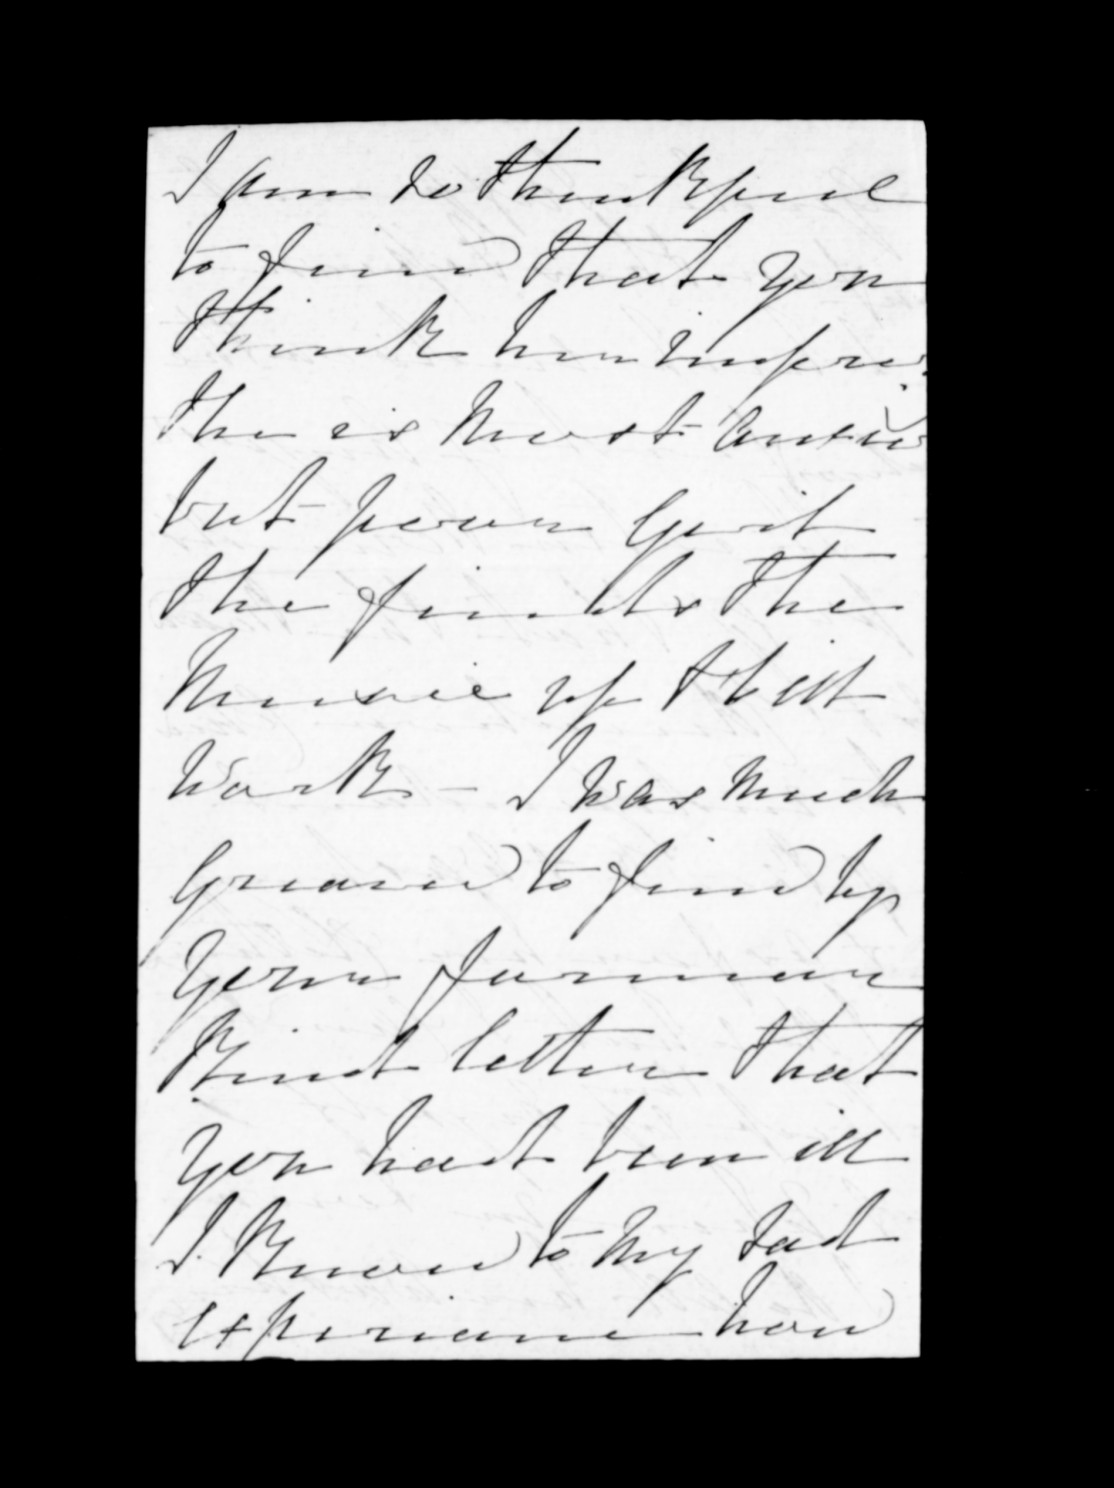 I am so thankful
to find that you
think him impro
the is most anxio
but poor
the finds the
music up still
work - I was much
grieved to find by
your former
kind letter that
you had been ill
I know to my sad
experience how